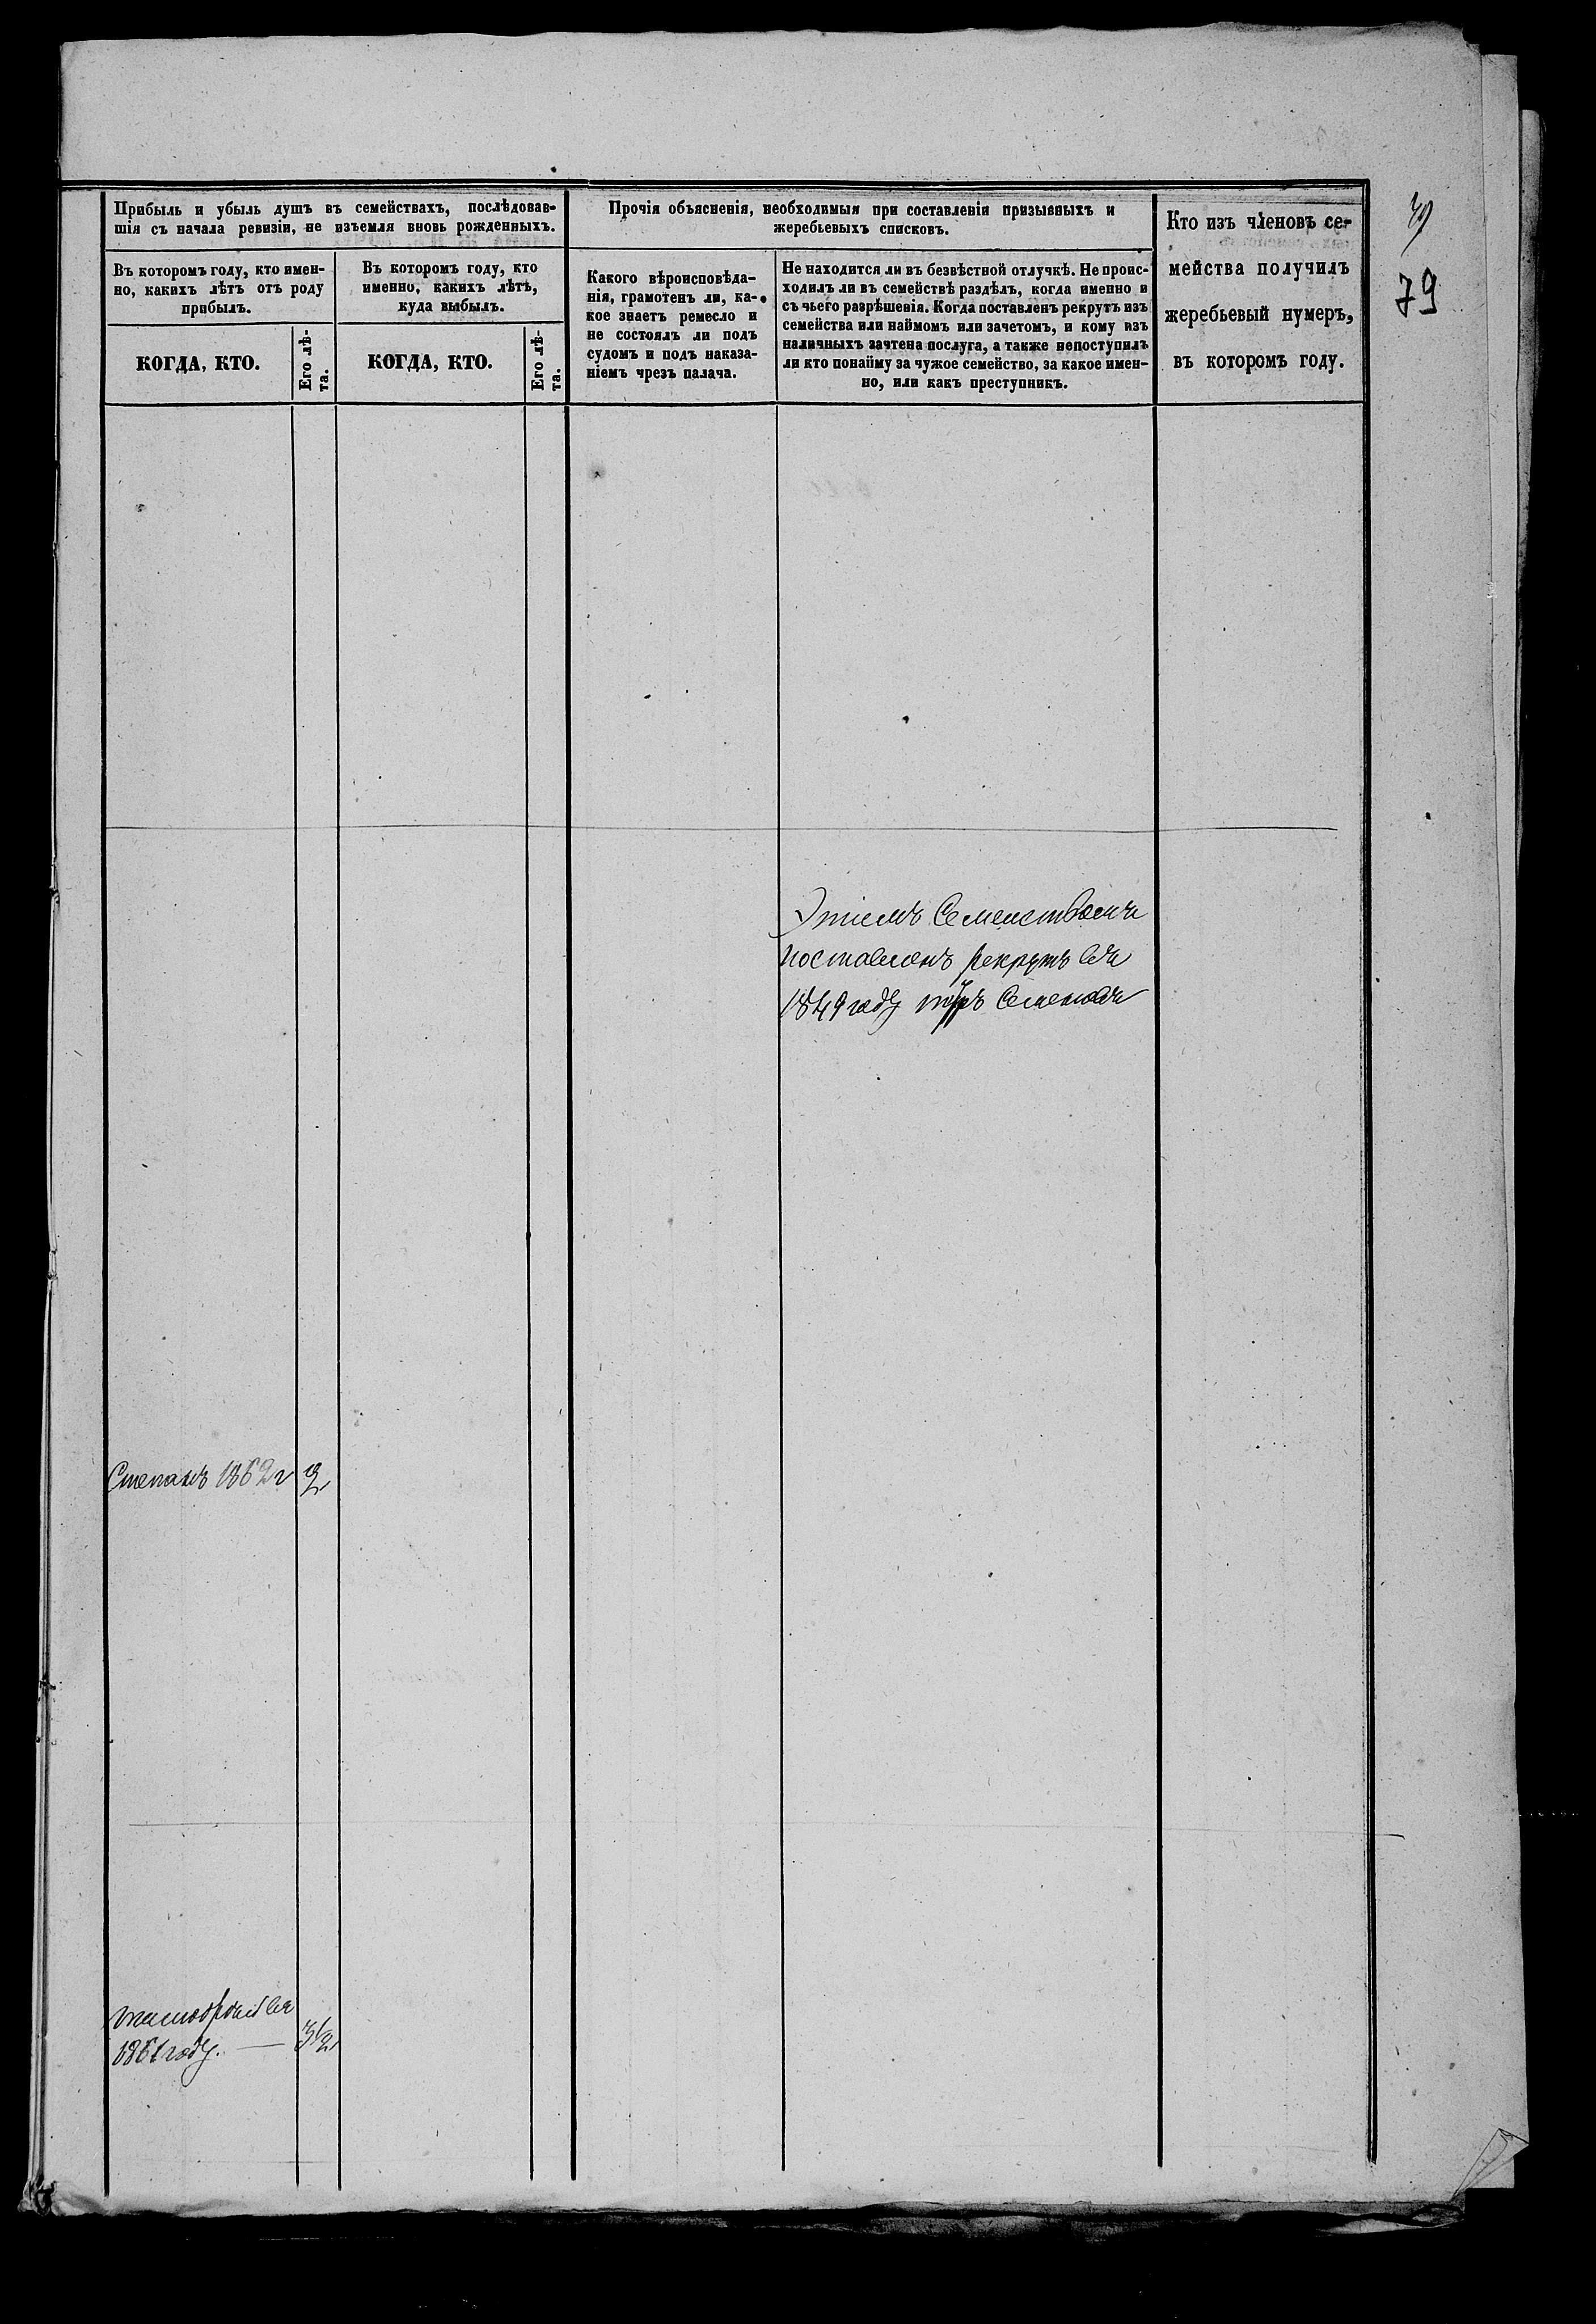 Прибыль и убыль душъ въ семействахъ, послѣдовав-
шія съ начала ревизіи, не изъемля вновь рожденныхъ.
Въ которомъ году, кто имен-
но, какихъ лѣтъ отъ роду
прибылъ.
КОГДА, КТО.
Его лѣ-
та.
Въ которомъ году, кто
именно, какихъ лѣтъ,
куда выбылъ.
КОГДА, КТО.
Его лѣ-
та.
Прочія объясненія, необходимыя при составленіи призывныхъ и
жеребьевыхъ списковъ.
Какого вѣроисповѣда-
нія, грамотенъ ли, ка-
кое знаетъ ремесло и
не состоялъ ли подъ
судомъ и подъ наказа-
ніемъ чрезъ палача.
Не находится ли въ безвѣстной отлучкѣ. Не проис-
ходилъ ли въ семействѣ раздѣлъ, когда именно и
съ чьего разрѣшенія. Когда поставленъ рекрутъ изъ
семейства или наймомъ или зачетомъ, и кому изъ
наличныхъ зачтена послуга, а также непоступилъ
ли кто понайму за чужое семейство, за какое имен-
но, или какъ преступникъ.
Кто изъ членовъ се-
мейства получилъ
жеребьевый нумеръ,
въ которомъ году.
79
Этимъ Семействомъ
поставленъ рекрутъ въ
1849 году Семеновъ
Степанъ 1862 г 2
1861 году. — 3½